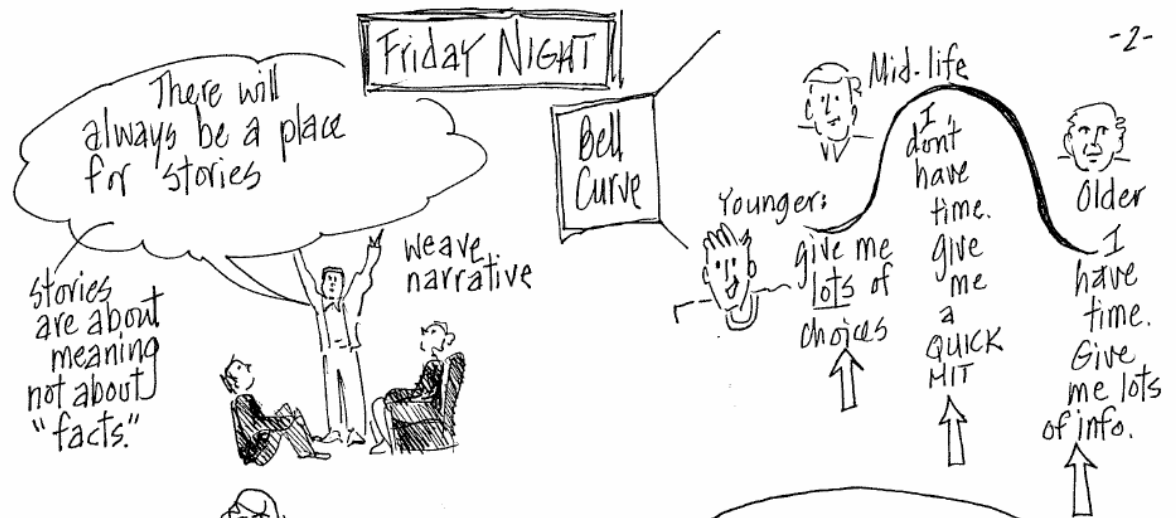 Friday NIGHT
-2-
There will
always be a place
for stories
stories
are about
meaning
not about
"facts."
weave
narrative
Bell
Curve
Younger:
give me
lots of
choices
Mid-life
I
don't
have
time.
give
me
a
QUICK
HIT
Older
I
have
time.
Give
me lots
of info.